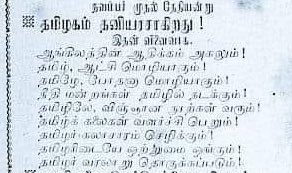 நவம்பர் முதல் தேதியன்று
தமிழகம் தனியரசாகிறது!
இதன் விளைவாக.
ஆங்கிலத்தின் ஆதிக்கம் அகலும்!
தமிழ், ஆட்சி மொழியாகும்!
தமிழே, போதனா மொழியாகும்!
நீதி மன்றங்கள் தமிழில் நடக்கும்!
தமிழிலே, விஞ்ஞான நூற்கள் வரும்!
தமிழ்க் கலைகள் வளர்ச்சி பெறும்!
தமிழர் கலாசாரம் செழிக்கும்!
தமிழரிடையே ஒற்றுமை ஓங்கும்!
தமிழர் வரலாறு தொகுக்கப்படும்!